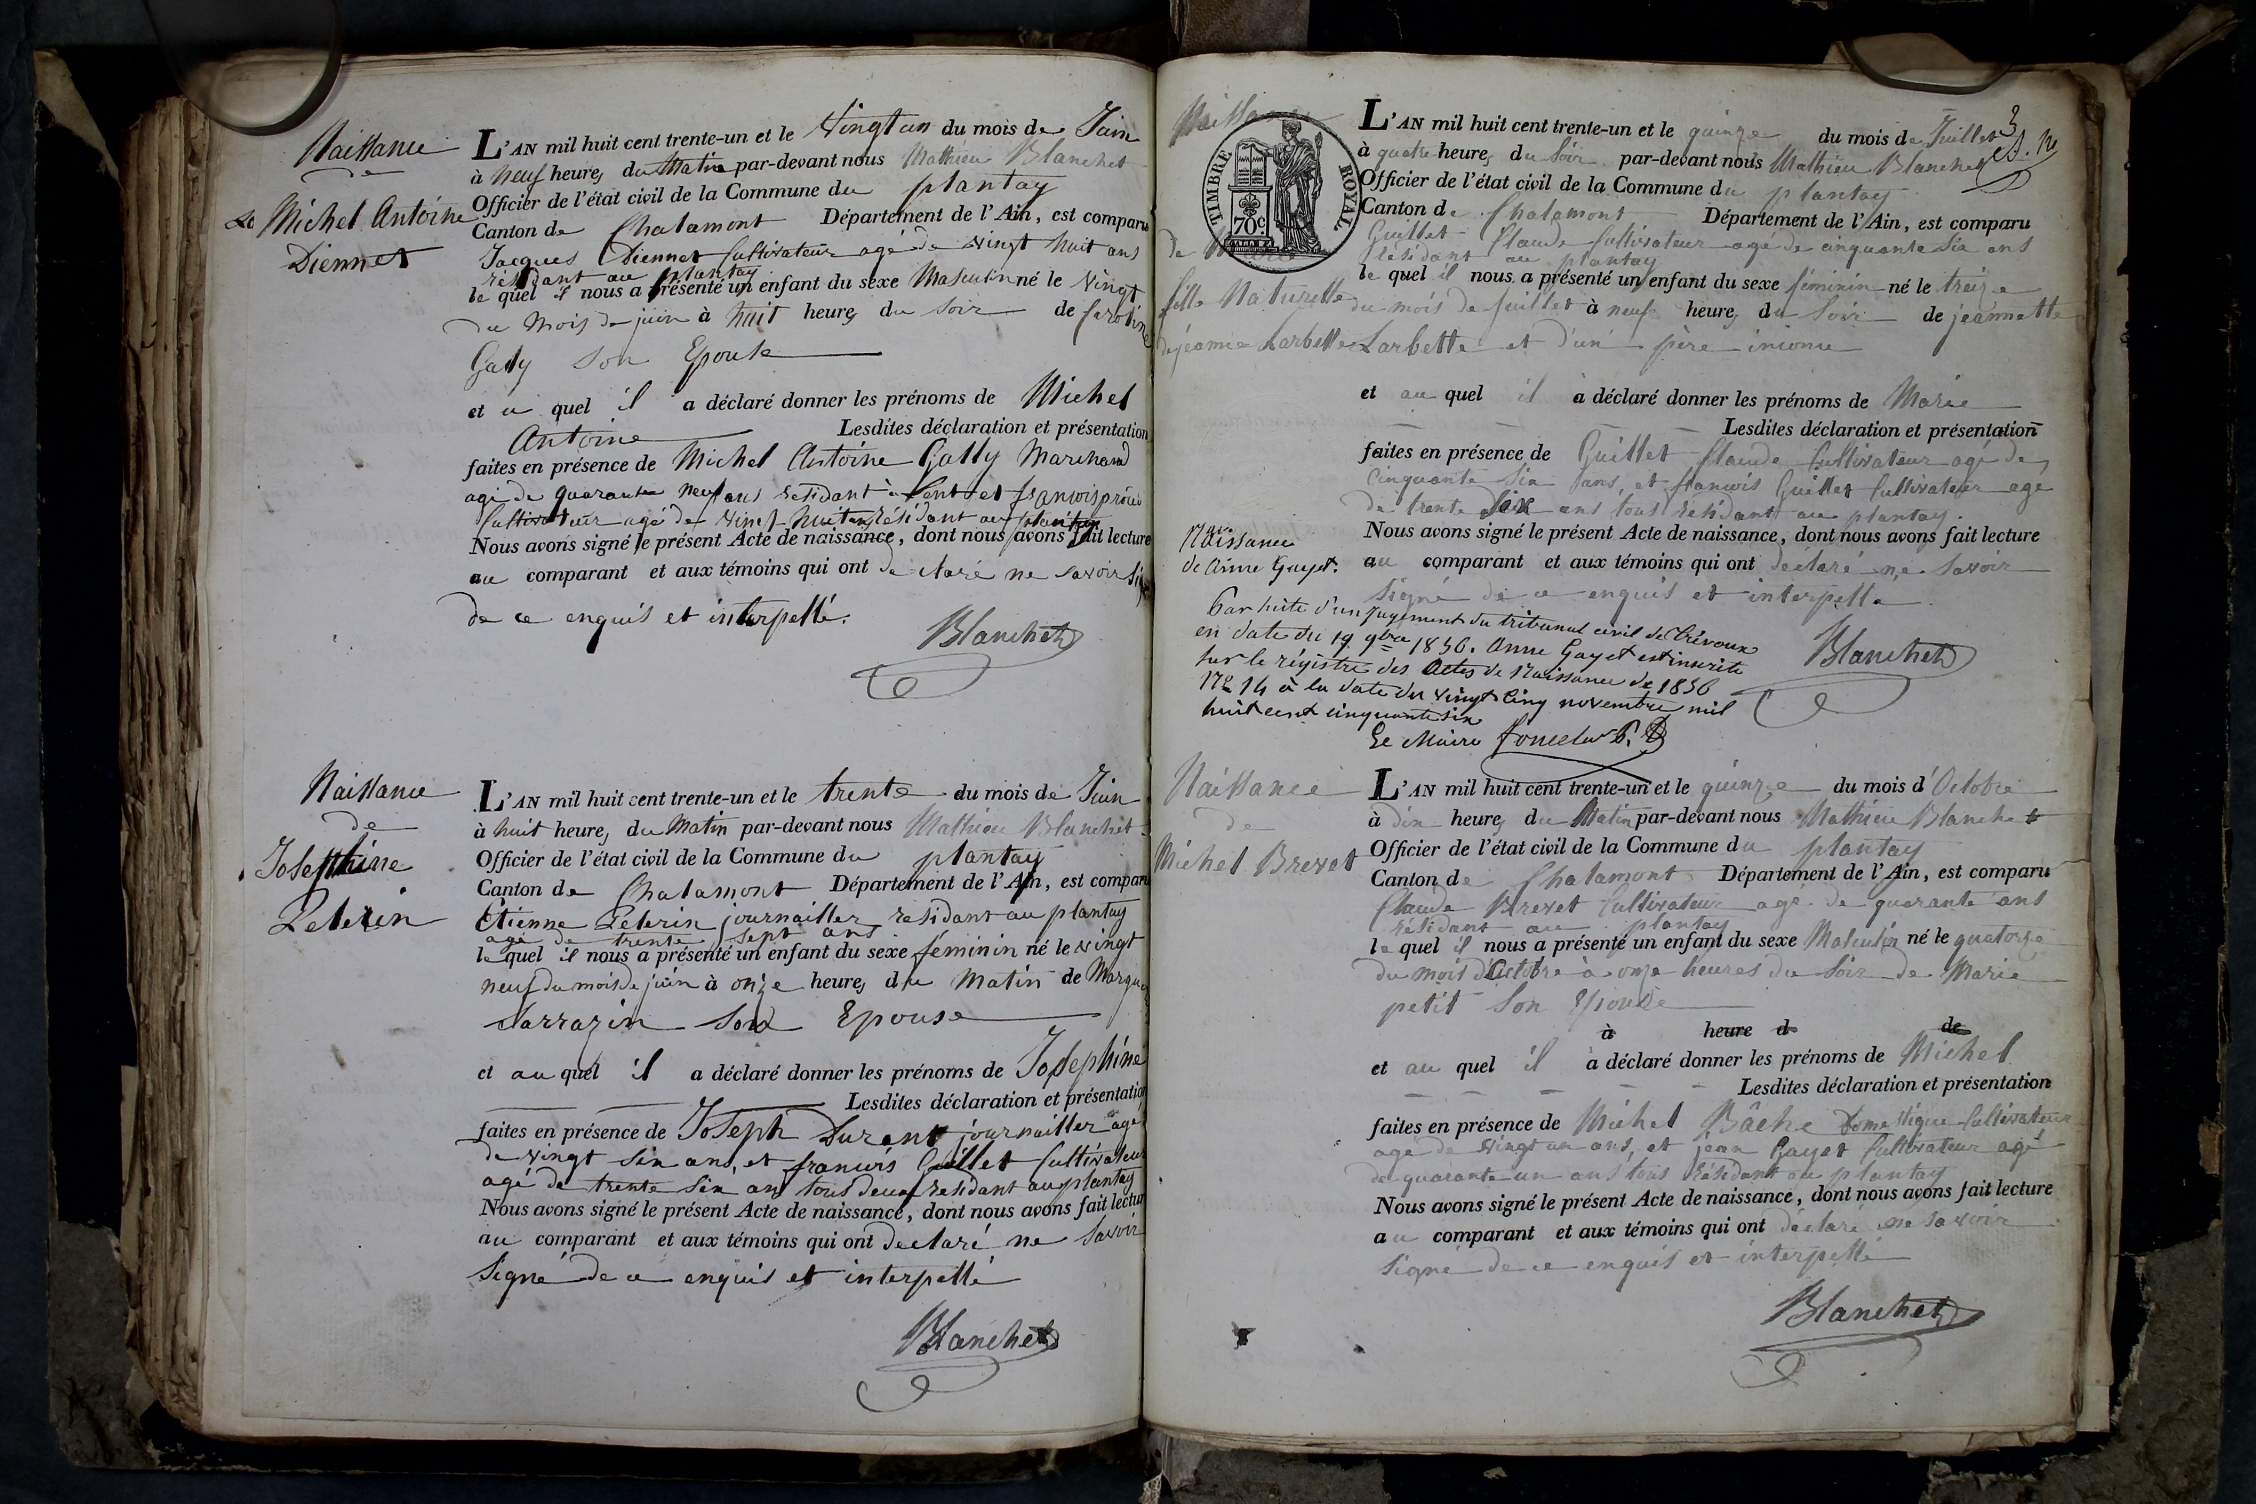 Naissance
de
Michel Antoine
Diennet
L'AN mil huit cent trente-un et le Vingt un du mois de Juin
à neuf heures du Matin par-devant nous Mathieu Blanchet
Officier de l'état civil de la Commune du plantay
Canton de Chalamont Département de l'Ain, est comparu
Jacques Diennet Cultivateur agé de vingt huit ans
résidant au plantay
le quel il nous a présenté un enfant du sexe Masculin né le Vingt
du Mois de juin à huit heures du Soir de
Gally son Epouse
et a quel il a déclaré donner les prénoms de Michel
Antoine Lesdites déclaration et présentation
faites en présence de Michel Antoine Gally Marchand
agé de quarante neuf ans résidant à Lent et françois
Cultivateur agé de vingt huit ans résidant au plantay
Nous avons signé le présent Acte de naissance, dont nous avons fait lecture
au comparant et aux témoins qui ont declaré ne savoir
de ce enquis et interpellé.
Blanchet
Naissance
de
Josephine
Pelerin
L'AN mil huit cent trente-un et le trente du mois de Juin
à huit heures du Matin par-devant nous Mathieu Blanchet
Officier de l'état civil de la Commune du plantay
Canton de Chalamont Département de l'Ain, est comparu
Etienne Pelerin journailler résidant au plantay
agé de trente sept ans
le quel il nous a présenté un enfant du sexe féminin né le vingt
neuf du mois de juin à onze heures du Matin de
Sarrazin Son Epouse
et au quel il a déclaré donner les prénoms de Josephine
Lesdites déclaration et présentation
faites en présence de Joseph Durent journailler agé
de vingt six ans, et francois Guillet Cultivateur
agé de trente six ans tous deux résidant au plantay
Nous avons signé le présent Acte de naissance, dont nous avons fait lecture
au comparant et aux témoins qui ont declaré ne Savoir
Signé de ce enquis et interpellé
Blanchet
3
Naissance
TIMBRE ROYAL
70c.
de
fille Naturelle
de jeanne Larbette
L'AN mil huit cent trente-un et le quinze du mois de Juillet
à quatre heures du Soir par-devant nous Mathieu Blanchet
Officier de l'état civil de la Commune du plantay
Canton de Chalamont Département de l'Ain, est comparu
Guillet Claude Cultivateur agé de cinquante six ans
Résidant au plantay
le quel il nous a présenté un enfant du sexe féminin né le treize
du mois de juillet à neuf heures du Soir de jeannette
Larbette et d'un père inconu
et au quel il à déclaré donner les prénoms de Marie
Lesdites déclaration et présentation
faites en présence de Guillet Claude Cultivateur agé de
Cinquante Six ans, et francois Guillet Cultivateur agé
de trente Six ans tous résidant au plantay.
Nous avons signé le présent Acte de naissance, dont nous avons fait lecture
au comparant et aux témoins qui ont déclaré ne Savoir
Signé de ce enquis et interpellé
Blanchet
Naissance
de Anne Gayet.
Par suite d'un jugement du tribunal civil de Trévoux
en date du 19 9bre 1856. Anne Gayet est inscrite
sur le régistre des Actes de Naissance de 1856
No 14 à la date du vingt Cinq novembre mil
huit cent cinquante six
Le Maire
Naissance
de
Michel Brevet
L'AN mil huit cent trente-un et le quinze du mois d'Octobre
à dix heures du Matin par-devant nous Mathieu Blanchet
Officier de l'état civil de la Commune du plantay
Canton de Chalamont Département de l'Ain, est comparu
Claude Brevet Cultivateur agé de quarante ans
résidant au plantay
le quel il nous a présenté un enfant du sexe Masculin né le quatorze
du mois d'Octobre à onze heures du Soir de Marie
petit Son Epouse
à heure d de
et au quel il à déclaré donner les prénoms de Michel
Lesdites déclaration et présentation
faites en présence de Michel Bâche Domestique Cultivateur
agé de vingt un ans, et jean Gayet Cultivateur agé
de quarante un ans tous Résidant au plantay
Nous avons signé le présent Acte de naissance, dont nous avons fait lecture
au comparant et aux témoins qui ont déclaré ne savoir
Signé de ce enquis et interpellé
Blanchet